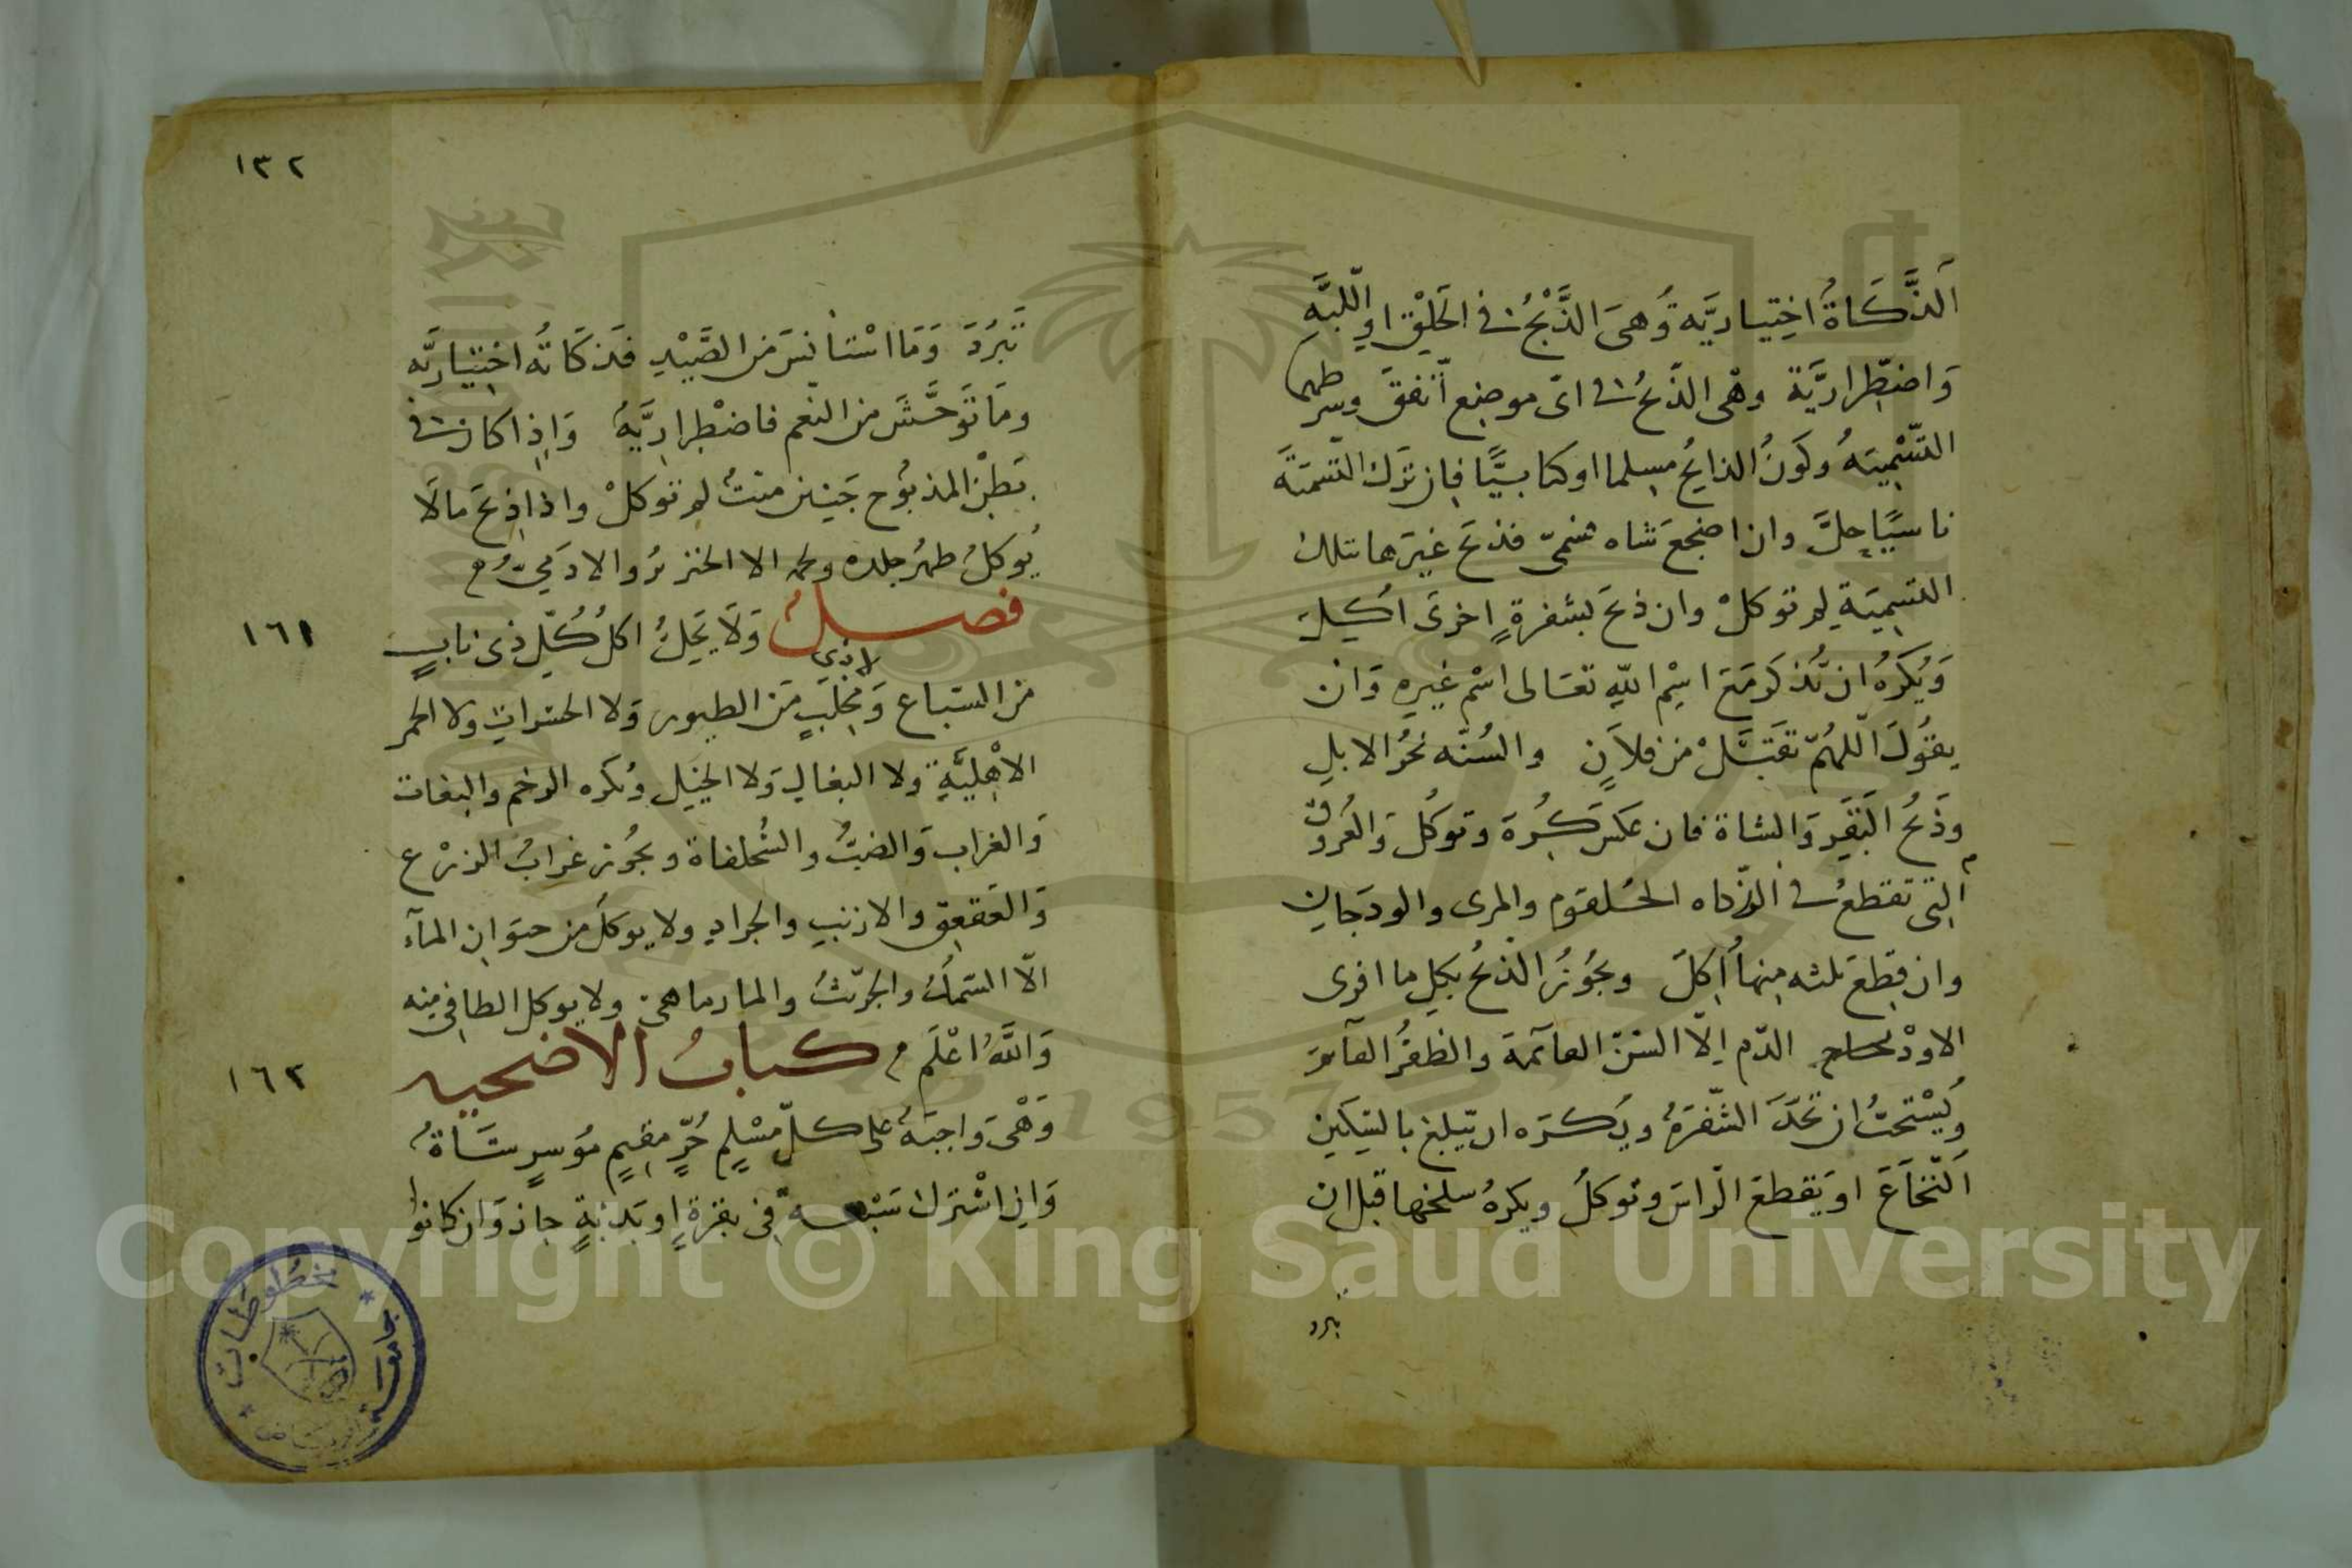 الذَّكَاةُ اخِتِياريَّه وُهىَ الذَّبْحُ فى الحَلْقِ او اللّبَّهِ
وَاضطِراريَّة وهْى الذّبحُ فى اىّ موضِع اتّفقَ وشرطهما
التّسْمِيَةُ وكَونُ الذابحُ مسِلما اوكتابيَّا فاِن ترَك التّسْمَيَةَ
ناسيًا حلَّ وان اضجعَ شاه فسَمّى فذبحَ غيَرها بتلك
التسِميَةِ لم توكلْ وان ذبحَ بشفرةٍ اخرىَ اكُلِتْ
وَيُكرَهُ ان يُذكرَ مَعَ اسِْم اللّهِ تعَالى اسْم غيرِهِ وَان
يقوُلَ اللّهُمّ تقَبّلْ من فلاَنٍ والسُنّه نحْرُ الابلِ
وذَبحُ البَقَرِ وَالشاة فان عكسَ كرُهَ وتوكُل وَالعُروق
التِى تقطعُ فى الذّكاه الحُلقوم والمرى والودجَانِ
وان قطِعَ ثلثه مِنها اُكِلَ ويجُوُزُ الذّبحُ بكلِ ما افرى
الاودْاج الدّم اِلّا السّنّ القآئمَة والظفُر القآئم
ويُسْتحبُّ ان تُحَدّ الشّفرَةُ ويُكرَه ان يّبلغ بالسّكينِ
اَلنّخَاعَ اويَقطعَ الرّاسَ وتوكلُ ويكرهُ سلخها قبل ان
تبرد
١٣٢
تَبْرُدَ وَمَا اسْتانسَ من الصَّيْدِ فذَكَاتُه اختِيَاريَّه
ومَا توَحَّشَ من النّعَم فاضْطِراِريَّهُ وَاِذِا كان فى
بَطِْن المذبُوح جَنين ميتٌ لم توكلْ واذا ذبحَ مالَا
يُوكلُ طهُر جلده ولحمه الا الخنزيرُ والادَمىّ
فصل وَلَا يَحِلُّ اكلُ كُلّ ذى نابٍ
١٦١
من السّباع وَلا ذى مِخِلَبٍ مَن الطيور وَلا الحشراتِ ولا الحمر
الاهْلِيَّةِ ولا البغالِ وَلا الخيَل ويُكرَه الرخم والبغاث
وَالغراب وَالضبُّ والسُّلحفاة ويجُوز غرابُ الزرْع
وَالعَقعقِ والارنبِ والجرادِ ولا يوكلَ من حيوَانِ المآءِ
الّا السّمكُ والجرّيثُ والمارماهىِ ولا يوكل الطافىِ منه
وَاللَّهُ اعْلَم كتابُ الاضحيه
١٦٢
وَهْىَ وَاجبَةٌ على كلّ مسْلِمٍ حُرٍّ مقيِمٍ مُوسرٍ شَاةُ
وَانِ اشْترَك سَبْعة فِى بقرةٍ اوبَدنةٍ جاز وَان كانوا
مخطوطات
جامعة الرياض
Copyright © King Saud University
1957